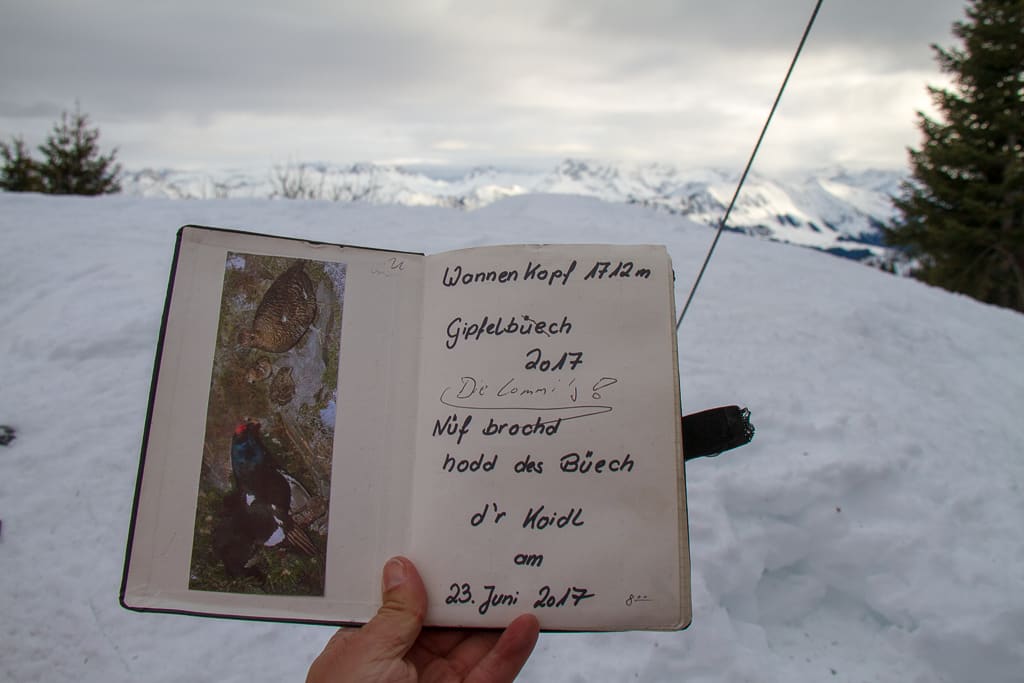 Wannenkopf 1712m
Gipfelbüech
2017
Die Lommi's
Nüf brochd
hodd des Büech
d'r Koidl
am
23. Juni 2017
8⁰⁰